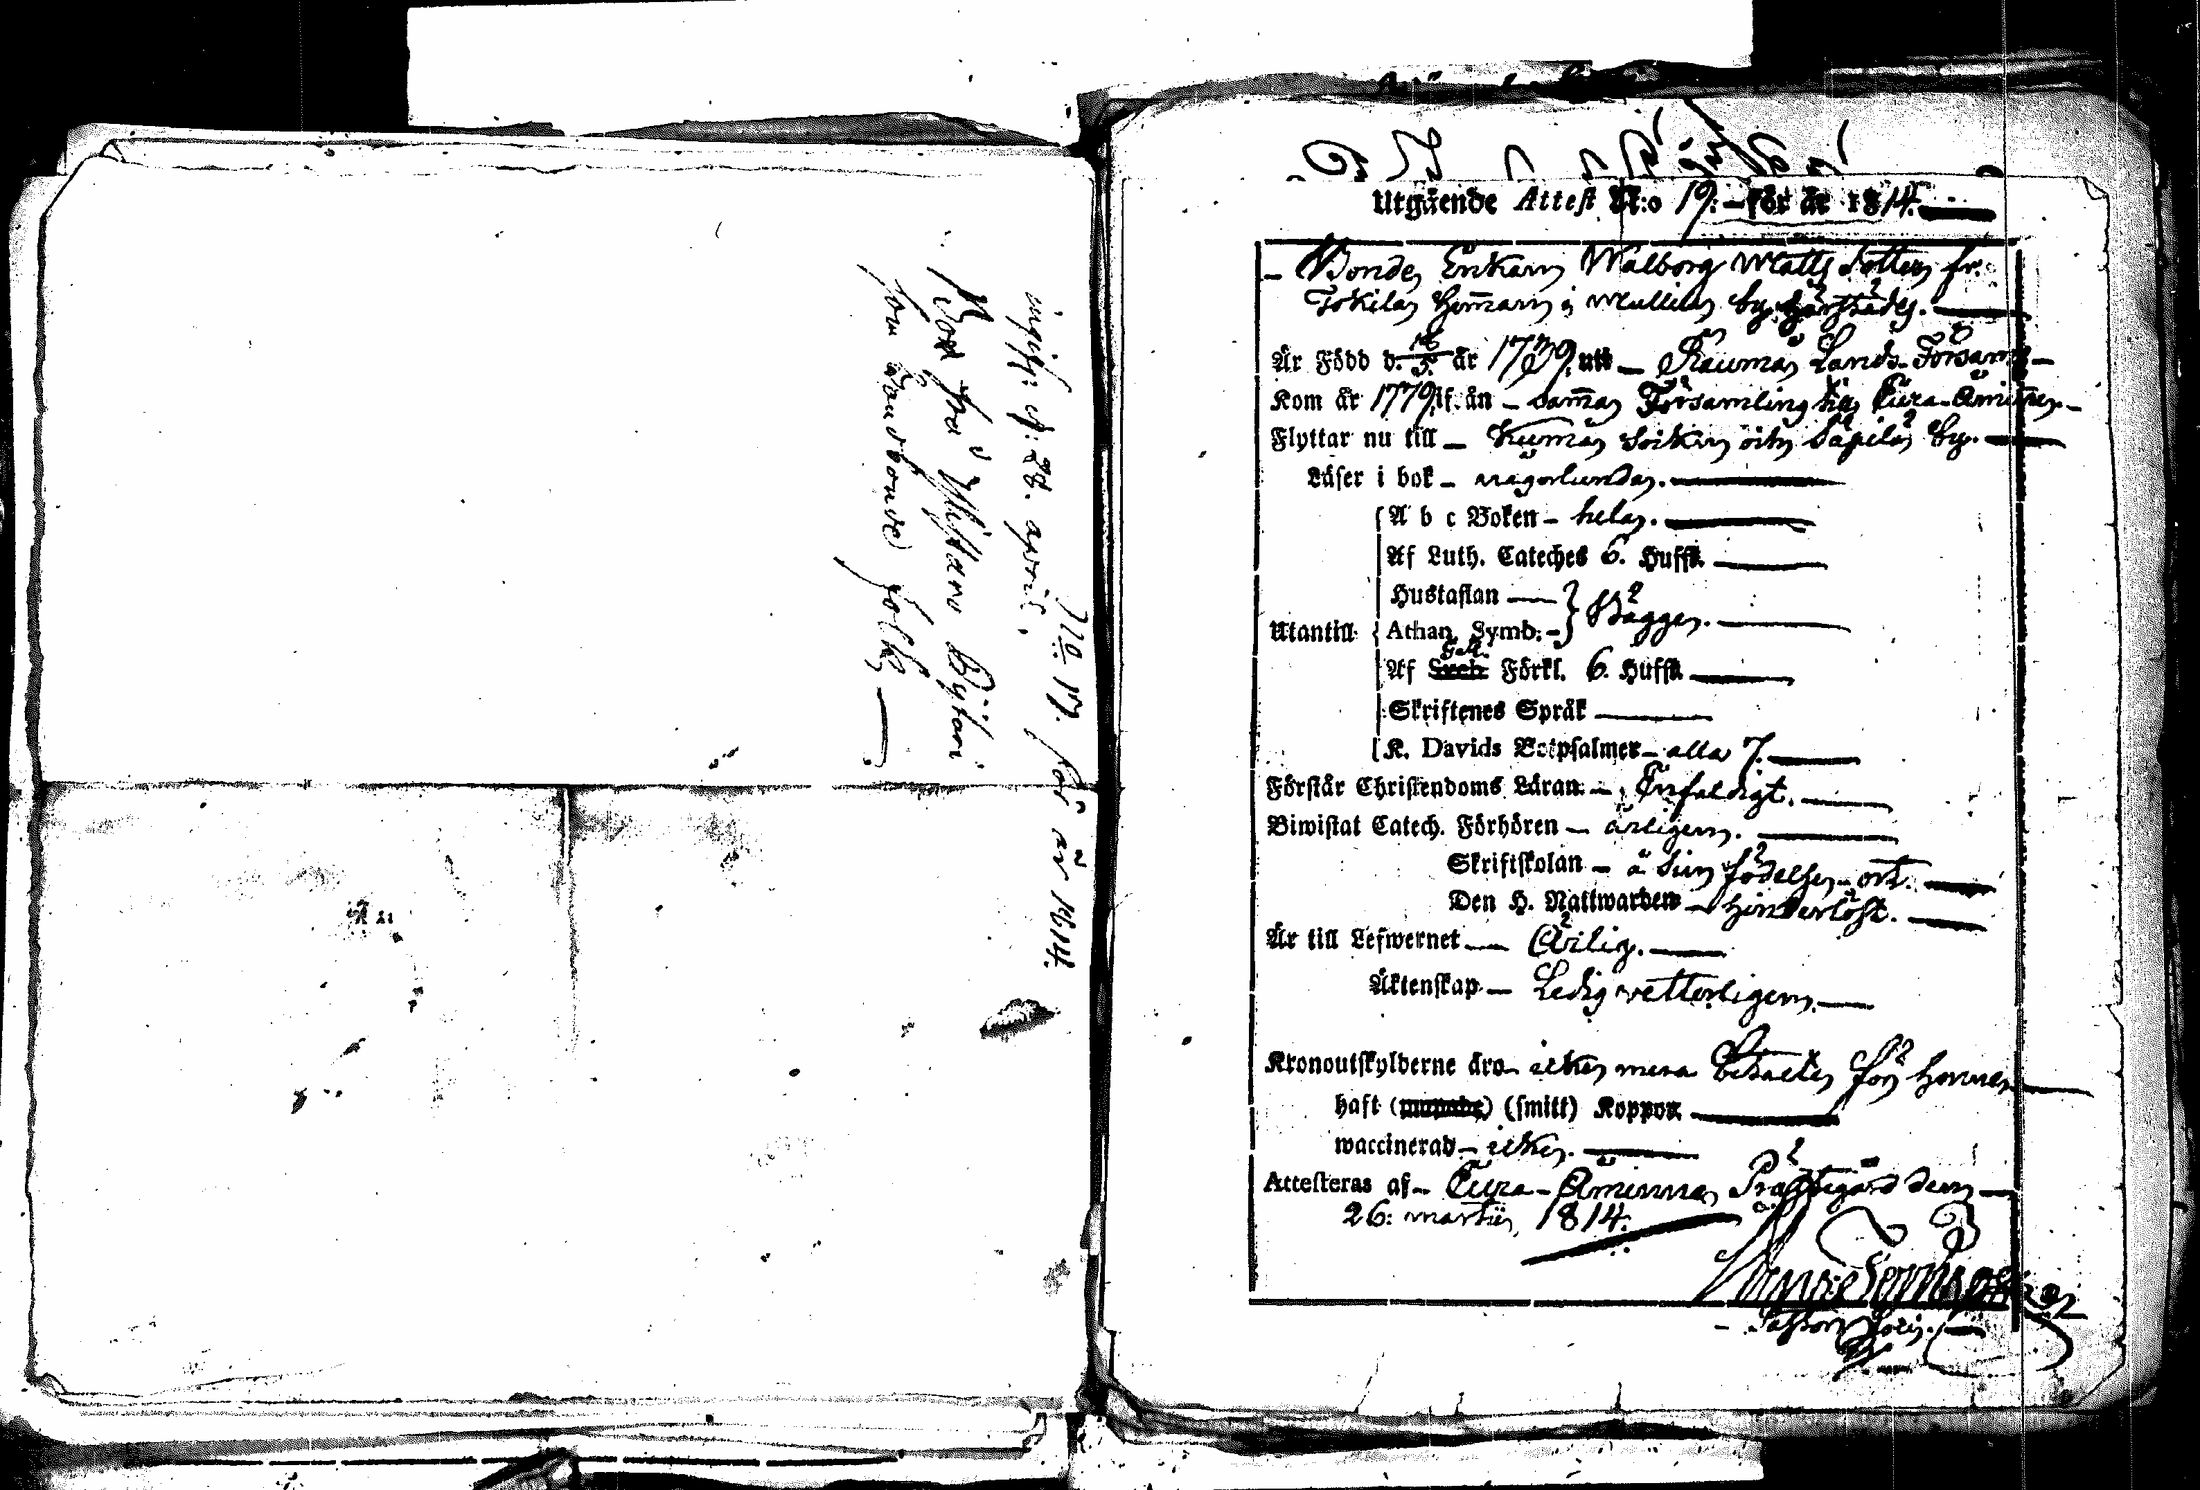 N:o 19. för år 1814.
ingifv: d: 28. april.
Bor fra
som Landbonde folk
Utgående Attest N:o 19. för år 1814.
Bonde Enkan Walborg Matts dotter fr.
Tokila Hemman i Mullila by härstädes.
Är Född d. 16/3. år 1779. uti Rauma Lands-Församl.
Kom år 1779 ifrån samma Församling till Eura-Åminne
Flyttar nu till Kumå Sokn och Säpilä by.
Läser i bok någorlunda.
A b c Boken hela.
Af Luth. Cateches 6. Huffst.
Hustaflan
Utantill Athan. Symb. Bägge.
Af Sveb. Förkl. 6. Huffst.
Skriftenes Språk
K. Davids Botpsalmer alla 7.
Förstår Christendoms Läran Enfaldigt.
Biwistat Catech. Förhören årligen.
Skriftskolan å sin födelse-ort.
Den H. Nattwarden hinderlöst.
Är till Lefwernet Ärlig.
Äktenskap Ledig vetterligen.
Kronoutskylderne äro icke mera betalte för henne
haft (smitt) Koppor
waccinerad icke.
Attesteras af Eura-Åminne Prästegård den
26: martii 1814.
Pastor